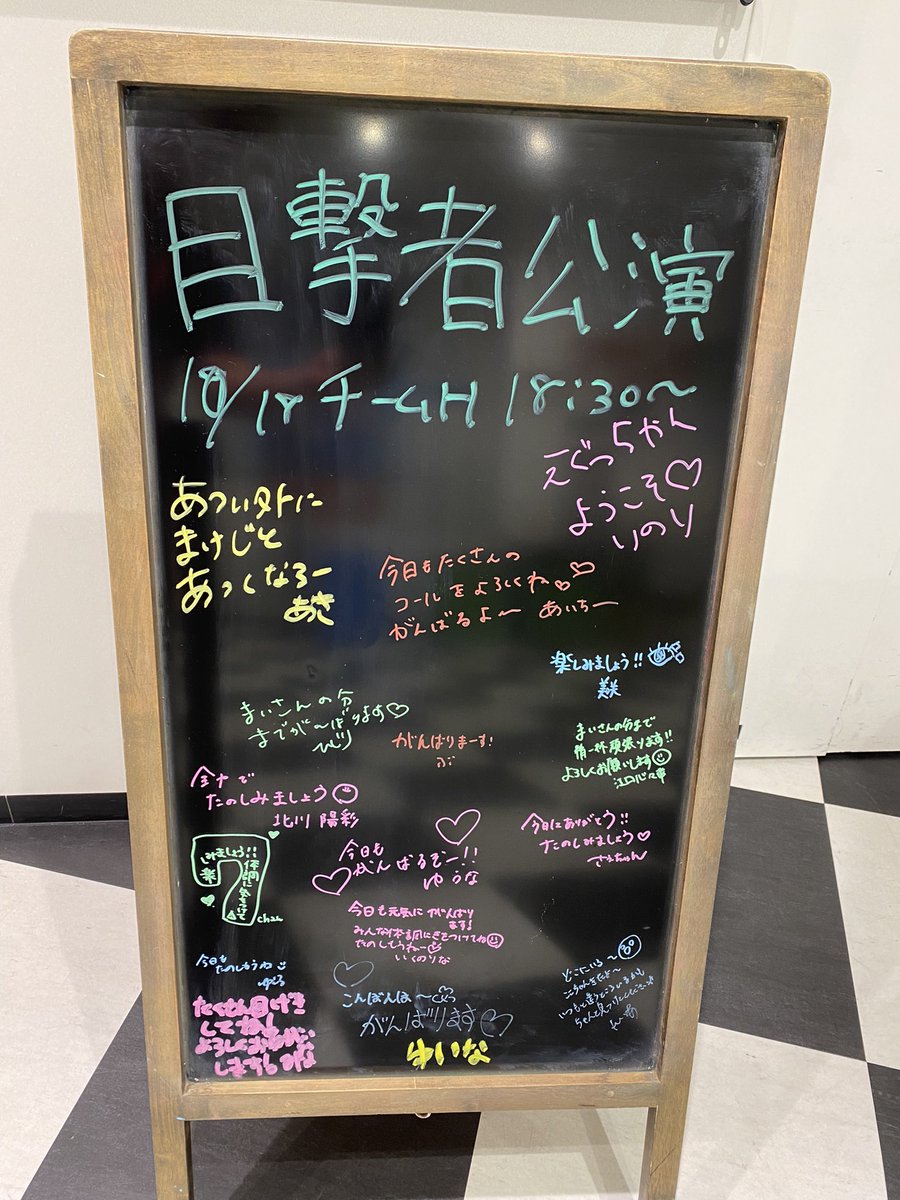 目撃者公演
10/18 チームH 18:30〜
えぐっちゃん
ようこそ♡
いのり
あつい外に
まけじと
あつくなろー
あき
今日もたくさんの
コールをよろしくね♡♡
がんばるよ〜 あいちー
楽しみましょう!!
美
まいさんの分
までが〜ばります♡
びり
がんばりまーす!
まいさんの分まで
精一杯頑張ります!!
よろしくお願いします
江口心々華
全力で
たのしみましょう
北川 陽彩
今日は ありがとう!!
たのしみましょう♡
さぁちゃん
今日も
がんばるぞー!!
ゆうな
楽しみましょう!!
体調に気をつけて
chan
今日も元気に がんばり
ます!
みんな体調にきをつけてね
たのしもうねー
いくのりな
今日も
たのしもうね
たくさん目げき
してね!
よろしくおねがい
します! みな
こんばんは〜
がんばります♡
ゆいな
どこにいる〜